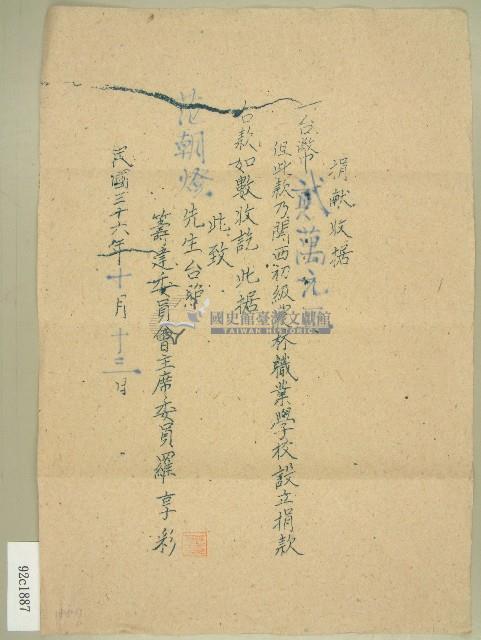 捐献收据
一台幣貳萬元
但此款乃關西初級農林職業學校設立捐款
右款如數收訖此据
此致
范朝燈先生台端
籌建委員會主席委員羅享彩
民國三十六年十月十三日
國史館臺灣文獻館
TAIWAN HISTORICA
92c1887